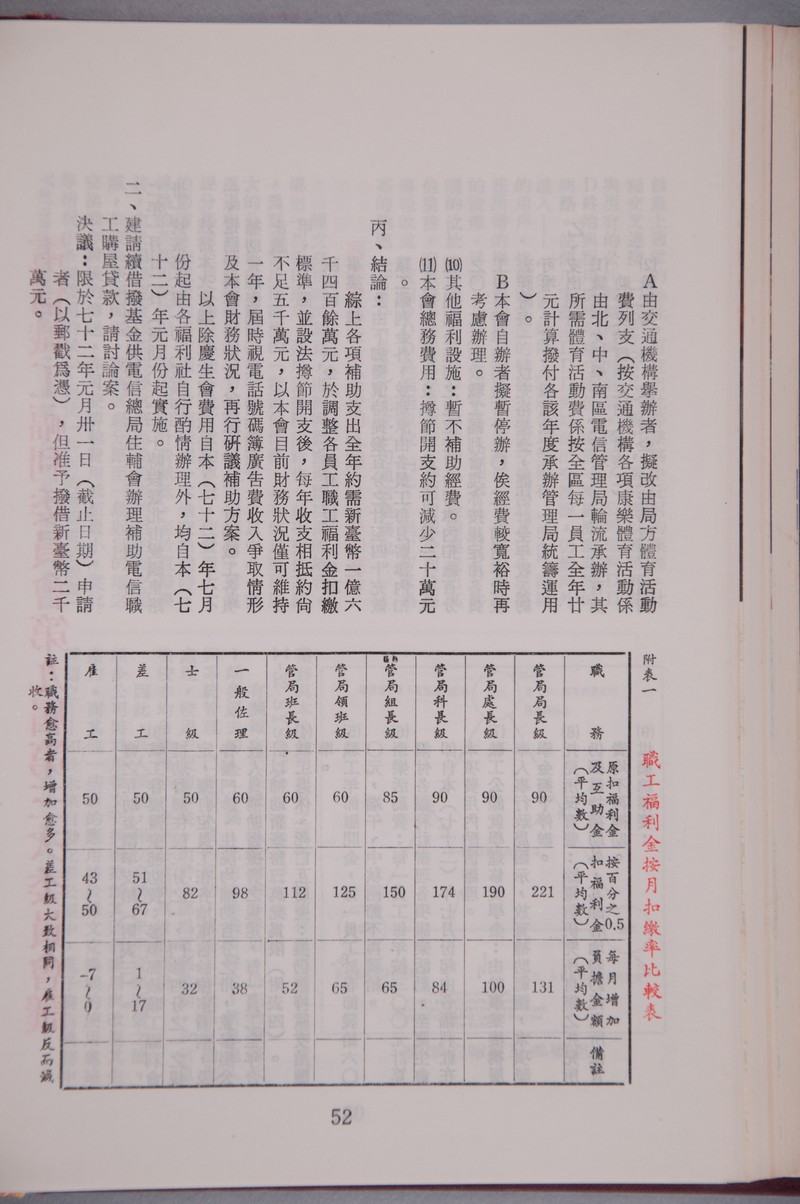 A由交通機構舉辦者，擬改由局方體育活動
費列支（按交通機構各項康樂體育活動係
由北、中、南區電信管理局輪流承辦，其
所需體育活動費係按全區每一員工全年廿
元計算撥付各該年度承辦管理局統籌運用
）。
B本會自辦者擬暫停辦，俟經費較寬裕時再
考慮辦理。
⑽其他福利設施：暫不補助經費。
⑾本會總務費用：撙節開支約可減少二十萬元
。
丙、結論：
綜上各項補助支出全年約需新臺幣一億六
千四百餘萬元，於調整各員工職工福利金扣繳
標準，並設法撙節開支後，每年收支相抵約尙
不足五千萬元，以本會目前財務狀況僅可維持
一年，屆時視電話號碼簿廣告費收入爭取情形
及本會財務狀況，再行硏議補助方案。
以上除慶生會費用自本（七十二）年七月
份起由各福利社自行酌情辦理外，均自本（七
十二）年元月份起實施。
二、建請續借撥基金供電信總局住輔會辦理補助電信職
工購屋貸款，請討論案。
決議：限於七十二年元月卅一日（截止日期）申請
者（以郵戳爲憑），但准予撥借新臺幣二千
萬元。
附表一
職工福利金按月扣繳率比較表
職務
原扣福利金
及互助金
（平均數）
按百分之0.5
扣福利金
（平均數）
每月增加
負擔金額
（平均）
備註
管局局長級 90 221 131
管局處長級 90 190 100
管局科長級 90 174 84
管局組長級 85 150 65
管局領班級 60 125 65
管局班長級 60 112 52
一般佐理 60 98 38
士級 50 82 32
差工 50 51~67 1~17
雇工 50 43~50 -7~0
註：職務愈高者，增加愈多。差工級大致相同，雇工級反而減
收。
52